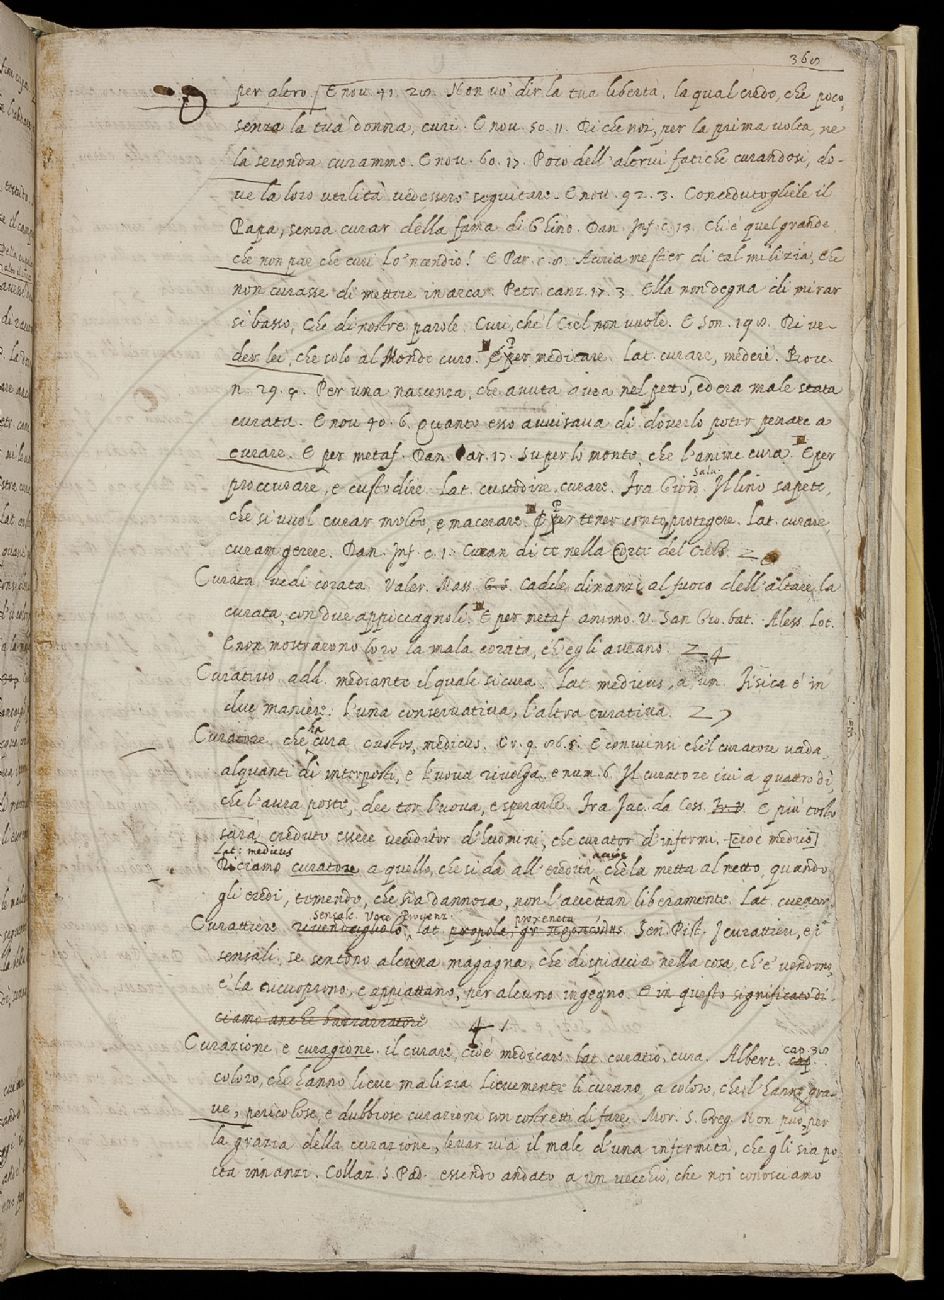 per altro. E nov. 41. 28. Non vo' dir la tua libertà, la qual credo, che poco,
senza la tua donna, curi. E nov. 50. 11. Di che noi, per la prima volta, ne
la seconda curammo. E nov. 60. 17. Poco dell'altrui fatiche curandosi, do-
ve la loro utilità vedessero seguitare. E nov. 92. 3. Concedutogliele il
Papa, senza curar della fama di Ghino. Dan. Inf. c. 13. Chi è quel grande
che non par che curi lo'ncendio? E Par. c. 8. Avria mestier di tal milizia, che
non curasse di mettere in arca. Petr. canz. 17. 3. Ella non degna di mirar
sì basso, Che di nostre parole Curi, che'l Ciel non vuole. E Son. 198. Di ve-
der lei, che sola al Mondo curo. E per medicare. Lat. curare, mederi. Bocc.
n. 29. 4. Per una nascenza, che avuta avea nel petto, ed era male stata
curata. E nov. 40. 6. Quanto esso avvisava di doverlo poter penare a
curare. E per metaf. Dan. Par. 17. Su per lo monte, che l'anime cura. E per
proccurare, e custodire. Lat. custodire, curare. Fra Giord. Salu. Il lino sapete,
che si vuol curar molto, e macerare. E per tener conto, protegere. Lat. curare,
curam gerere. Dan. Inf. c. 1. Curan di te nella Corte del Cielo.
Curata. vedi corata. Valer. Mass. Cadde dinanzi al fuoco dell'altare la
curata, con due appiccagnoli. E per metaf. animo. V. San Gio. bat. Aless. Lot.
E non mostrarono loro la mala corata, ch'egli aveano. 24
Curativo add. mediante il quale si cura. Lat. medicus, a, um. Fisica è in
due maniere: l'una conservativa, l'altra curativa. 27
Curatore. che ha cura custos, medicus. Cr. 9. 86. 5. E conviensi che'l curatore vada
alquanti dì interposti, e l'uova rivolga, e num. 6. Il curatore ivi a quattro dì,
che l'avrà poste, dee tor l'uova, e sperarle. Fra Jac. da Cess. E più tosto
sarà creduto essere venditor d'huomini, che curator d'infermi. [cioè medico]
Lat: medicus
Diciamo curatore a quello, che si dà all'eredità acciò chè la metta al netto, quando
gli eredi, temendo, che sia dannosa, non l'accettan liberamente. Lat. curator
Sensale. Voce proxeneta
Curattiere rivendugliolo, lat. propola, gr. Sen. Pist. I curattieri, e i
sensali, se sentono alcuna magagna, che dispiaccia nella cosa, ch'è vendono,
e' la ricuoprono, e appiattano, per alcuno ingegno. E in questo significato di-
ciamo anche barattatore
Curazione, e curagione. il curare, cioè medicare. Lat. curatio, cura. Albert. cap. 38
coloro, che hanno lieve malizia lievemente li curano, a coloro, che l'hanno gra-
ve, pericolose, e dubbiose curazioni son costretti di fare. Mor. S. Greg. Non può, per
la grazia della curazione, levar via il male d'una infermità, che gli sia po
sta innanzi. Collaz. S. Pad. essendo andato a un vecchio, che noi conosciamo